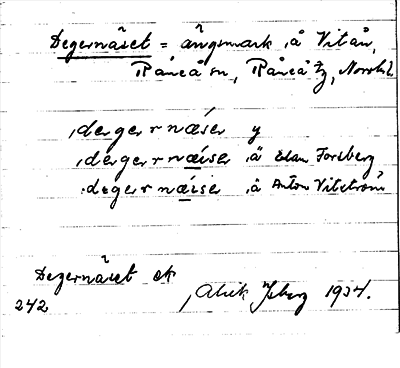 Degernäset = ängsmark i å Vitån,
Råneå sn, Råneå tg, Norrb. l.
degernæse y
degernæise ä Elan Forsberg
degernæise å Anton Vitström
Degernäset ck
242 Alrik Isberg 1934.